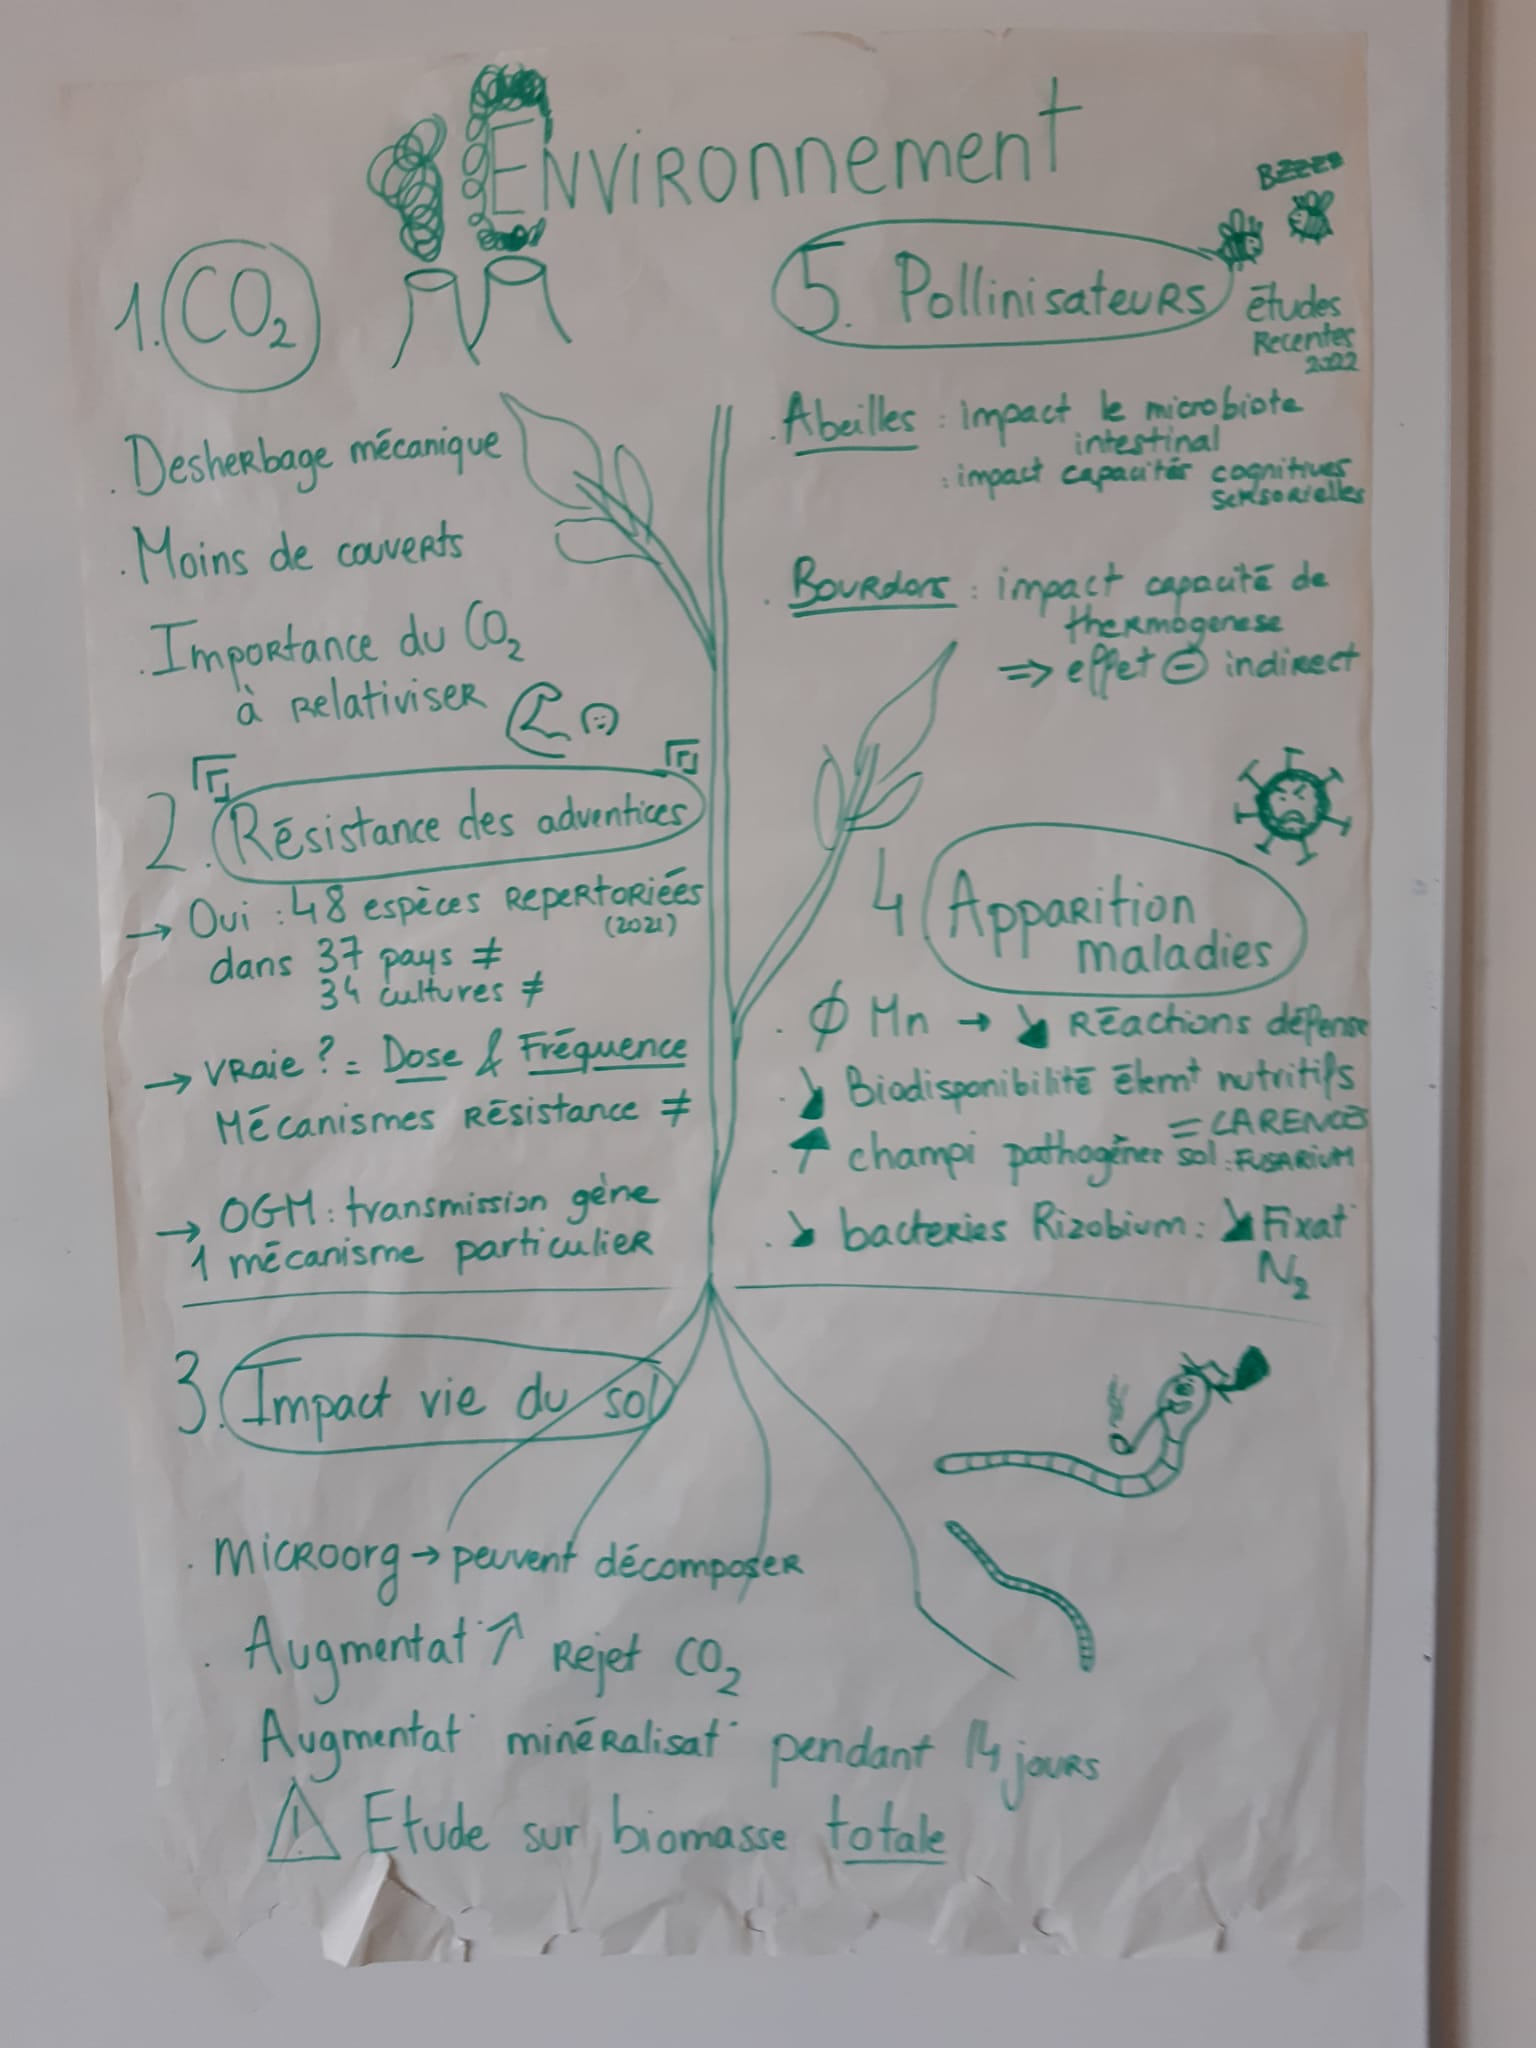 Environnement
1. CO2
. Desherbage mécanique
. Moins de couverts
. Importance du CO2
à relativiser
2. Résistance des adventices
→ Oui : 48 espèces repertoriées
(2021)
dans 37 pays ≠
34 cultures ≠
→ vraie ? = Dose & Fréquence
Mécanismes résistance ≠
→ OGM : transmission gène
1 mécanisme particulier
3. Impact vie du sol
. microorg → peuvent décomposer
. Augmentat° ↗ rejet CO2
. Augmentat° minéralisat° pendant 14 jours
! Etude sur biomasse totale
4 Apparition
maladies
. ∅ Mn → ↘ réactions défense
. ↘ Biodisponibilité élemt nutritifs
= CARENCES
. ↗ champi pathogènes sol : FUSARIUM
. ↘ bacteries Rizobium : ↘ Fixat°
N2
BZZZZ
5. Pollinisateurs
études
recentes
2022
. Abeilles : impact le microbiote
intestinal
: impact capacités cognitives
sensorielles
. Bourdons : impact capacité de
thermogenese
⇒ effet ⊖ indirect